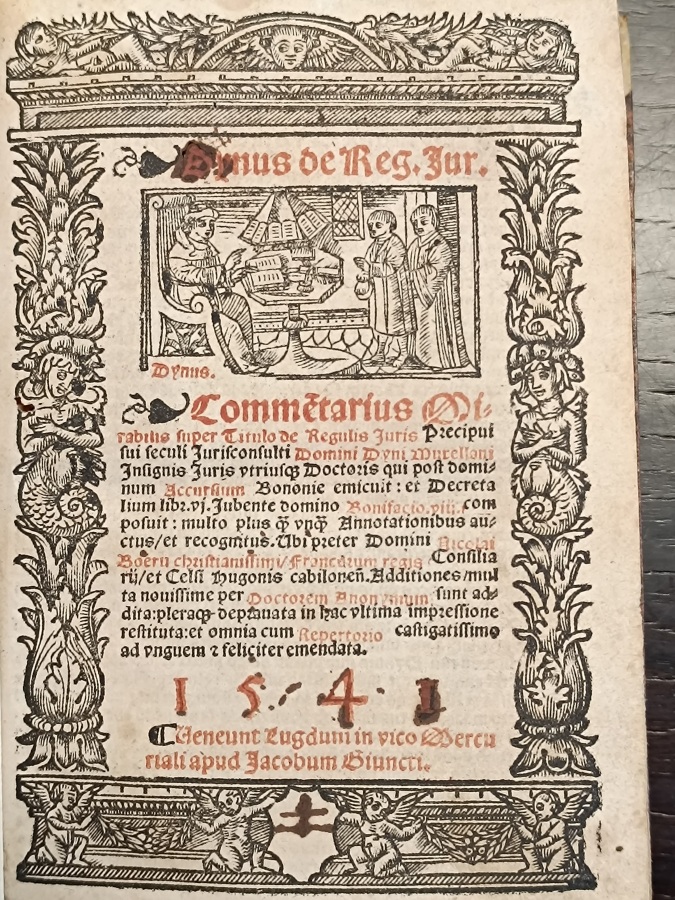 Dynus de Reg. Jur.
Dynus.
Commētarius Mi-
rabilis super Titulo de Regulis Juris Precipui
sui seculi Jurisconsulti Domini Dyni Muxellani
Insignis Juris vtriusqꝫ Doctoris qui post domi-
num Accursium Bononie emicuit : et Decreta
lium libr. vj. Jubente domino Bonifacio. viij. com
posuit : multo plus q̄ vnq̄ Annotationibus au-
ctus/et recognitus. Ubi preter Domini Nicolai
Boerii christianissimi/Francorum regis Consilia
rij/et Celsi Hugonis cabilonen̄. Additiones/mul
ta nouissime per Doctorem Anonymum sunt ad-
dita: pleraqꝫ deprauata in hac vltima impressione
restituta: et omnia cum Repertorio castigatissimo
ad vnguem ⁊ feliciter emendata.
1 5 4 1
Ueneunt Lugduni in vico Mercu
riali apud Jacobum Giuncti.